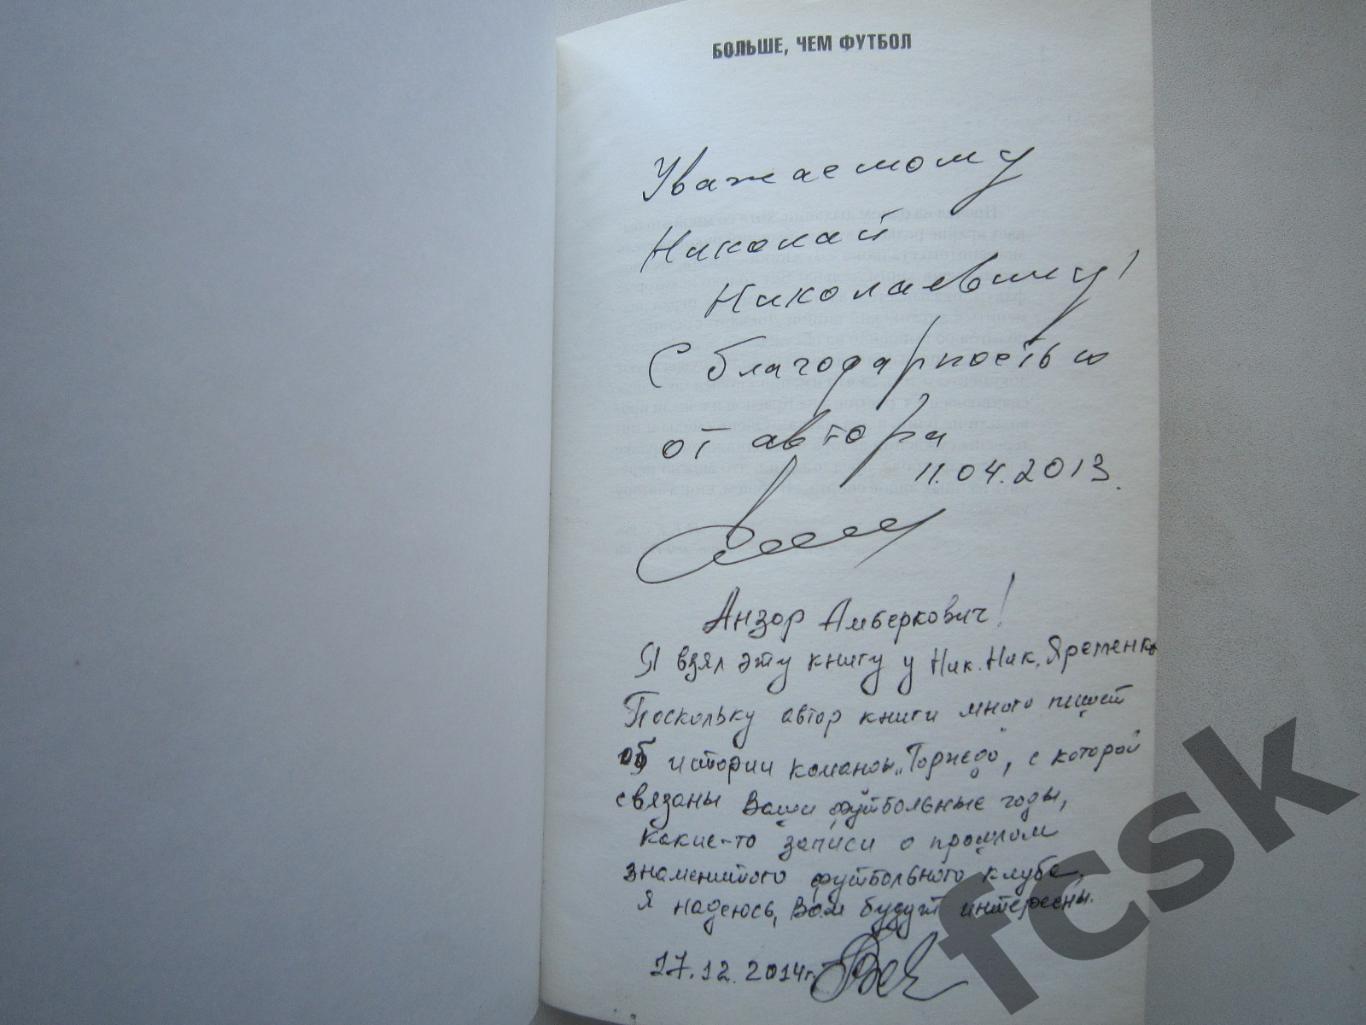 БОЛЬШЕ, ЧЕМ ФУТБОЛ
Уважаемому
Николай
Николаевичу!
С благодарностью
от автора
11.04.2013.
Анзор Амберкович!
Я взял эту книгу у Ник. Ник. Яременко
Поскольку автор книги много пишет
об истории команды „Торпедо", с которой
связаны Ваши футбольные годы,
какие-то записи о прошлом
знаменитого футбольного клуба,
я надеюсь, Вам будут интересны.
17.12.2014г.
fcsk